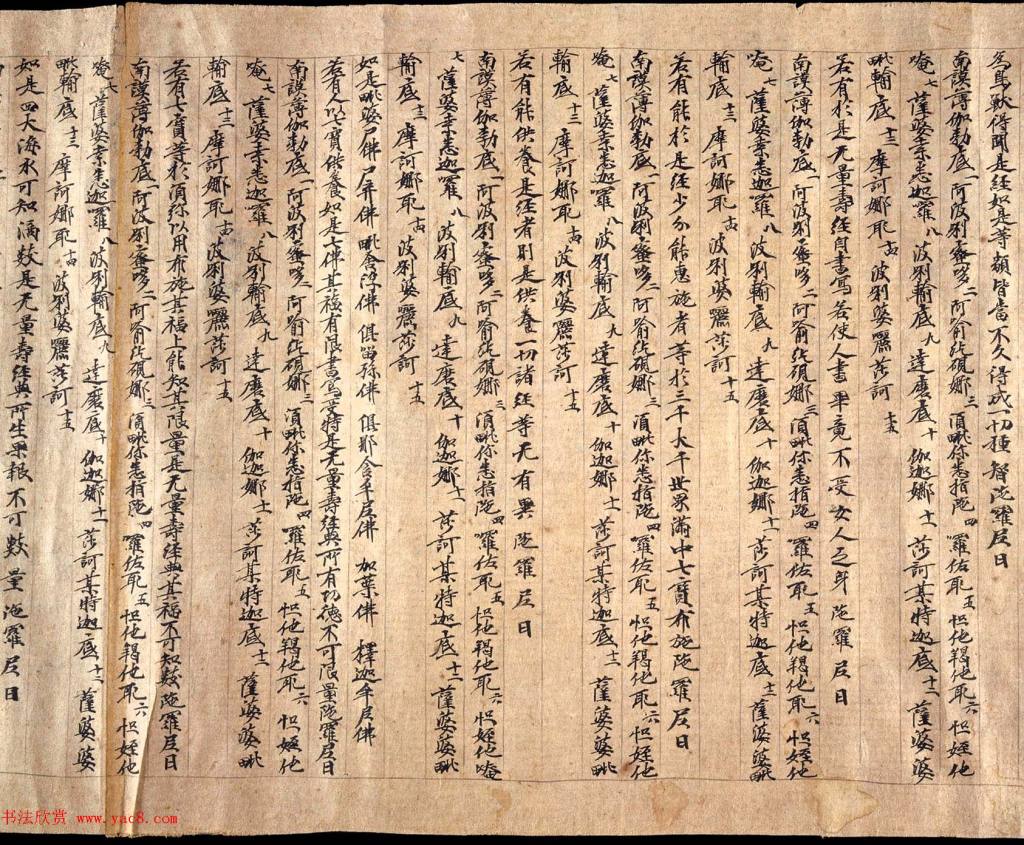 鳥獸得聞是經如是等類皆當不久得成一切種智陁羅尼曰
南謨薄伽勃底一阿波唎蜜哆二阿喻紇硯娜三須毗你悉指陁四囉佐耶五怛他羯他耶六怛姪他
唵七薩婆桒悉迦羅八波唎輸底九達磨底十伽迦娜十一莎訶某特迦底十二薩婆婆
毗輸底十三摩訶娜耶十四波唎婆囇莎訶十五
若有於是无量壽經自書寫若使人書畢竟不受女人之身陁羅尼曰
南謨薄伽勃底一阿波唎蜜哆二阿喻紇硯娜三須毗你悉指陁四囉佐耶五怛他羯他耶六怛姪他
唵七薩婆桒悉迦羅八波唎輸底九達磨底十伽迦娜十一莎訶某特迦底十二薩婆婆毗
輸底十三摩訶娜耶十四波唎婆囇莎訶十五
若有能於是經少分能惠施者等於三千大千世界滿中七寶布施陁羅尼曰
南謨薄伽勃底一阿波唎蜜哆二阿喻紇硯娜三須毗你悉指陁四囉佐耶五怛他羯他耶六怛姪他
唵七薩婆桒悉迦囉八波唎輸底九達磨底十伽迦娜十一莎訶某特迦底十二薩婆婆毗
輸底十三摩訶娜耶十四波唎婆囇莎訶十五
若有能供養是經者則是供養一切諸經等无有異陁羅尼曰
南謨薄伽勃底一阿波唎蜜哆二阿喻紇硯娜三須毗你悉指陁四囉佐耶五怛他羯他耶六怛姪他唵
七薩婆桒悉迦羅八波唎輸底九達磨底十伽迦娜十一莎訶某特迦底十二薩婆婆毗
輸底十三摩訶娜耶十四波唎婆囇莎訶十五
如是毗婆尸佛尸棄佛毗舍浮佛俱留孫佛俱那含牟尼佛加葉佛釋迦牟尼佛
若有人以七寶供養如是七佛其福有限書寫受持是无量壽經典所有功德不可限量陁羅尼曰
南謨薄伽勃底一阿波唎蜜哆二阿喻紇硯娜三須毗你悉指陁四囉佐耶五怛他羯他耶六怛姪他
唵七薩婆桒悉迦羅八波唎輸底九達磨底十伽迦娜十一莎訶某特迦底十二薩婆婆毗
輸底十三摩訶娜耶十四波唎婆囇莎訶十五
若有七寶等於須弥以用布施其福上能知其限量是无量壽經典其福不可知數陁羅尼曰
南謨薄伽勃底一阿波唎蜜哆二阿喻紇硯娜三須毗你悉指陁四囉佐耶五怛他羯他耶六怛姪他
唵七薩婆桒悉迦羅八波唎輸底九達磨底十伽迦娜十一莎訶某特迦底十二薩婆婆
毗輸底十三摩訶娜耶十四波唎婆囇莎訶十五
如是四大海水可知滴數是无量壽經典所生果報不可數量陁羅尼曰
书法欣赏 www.yac8.com